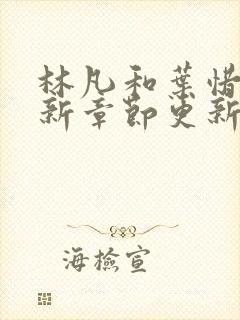 林凡和葉惜
新章節更新
海檢宣